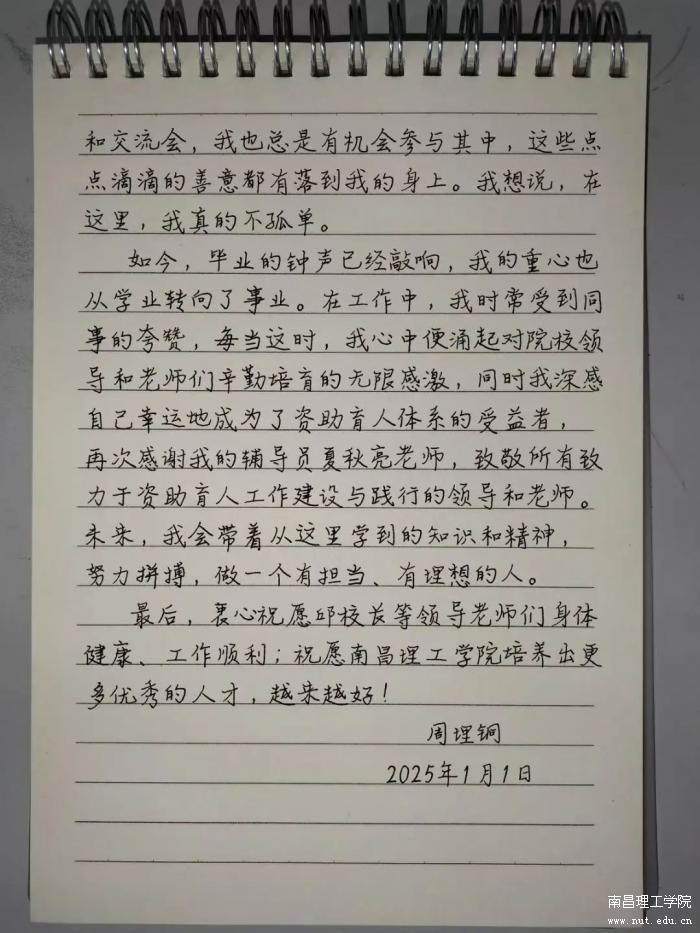 和交流会，我也总是有机会参与其中，这些点
点滴滴的善意都有落到我的身上。我想说，在
这里，我真的不孤单。
如今，毕业的钟声已经敲响，我的重心也
从学业转向了事业。在工作中，我时常受到同
事的夸赞，每当这时，我心中便涌起对院校领
导和老师们辛勤培育的无限感激，同时我深感
自己幸运地成为了资助育人体系的受益者，
再次感谢我的辅导员夏秋亮老师，致敬所有致
力于资助育人工作建设与践行的领导和老师。
未来，我会带着从这里学到的知识和精神，
努力拼搏，做一个有担当、有理想的人。
最后，衷心祝愿邱校长等领导老师们身体
健康、工作顺利；祝愿南昌理工学院培养出更
多优秀的人才，越来越好！
周理铜
2025年1月1日
南昌理工学院
www.nut.edu.cn